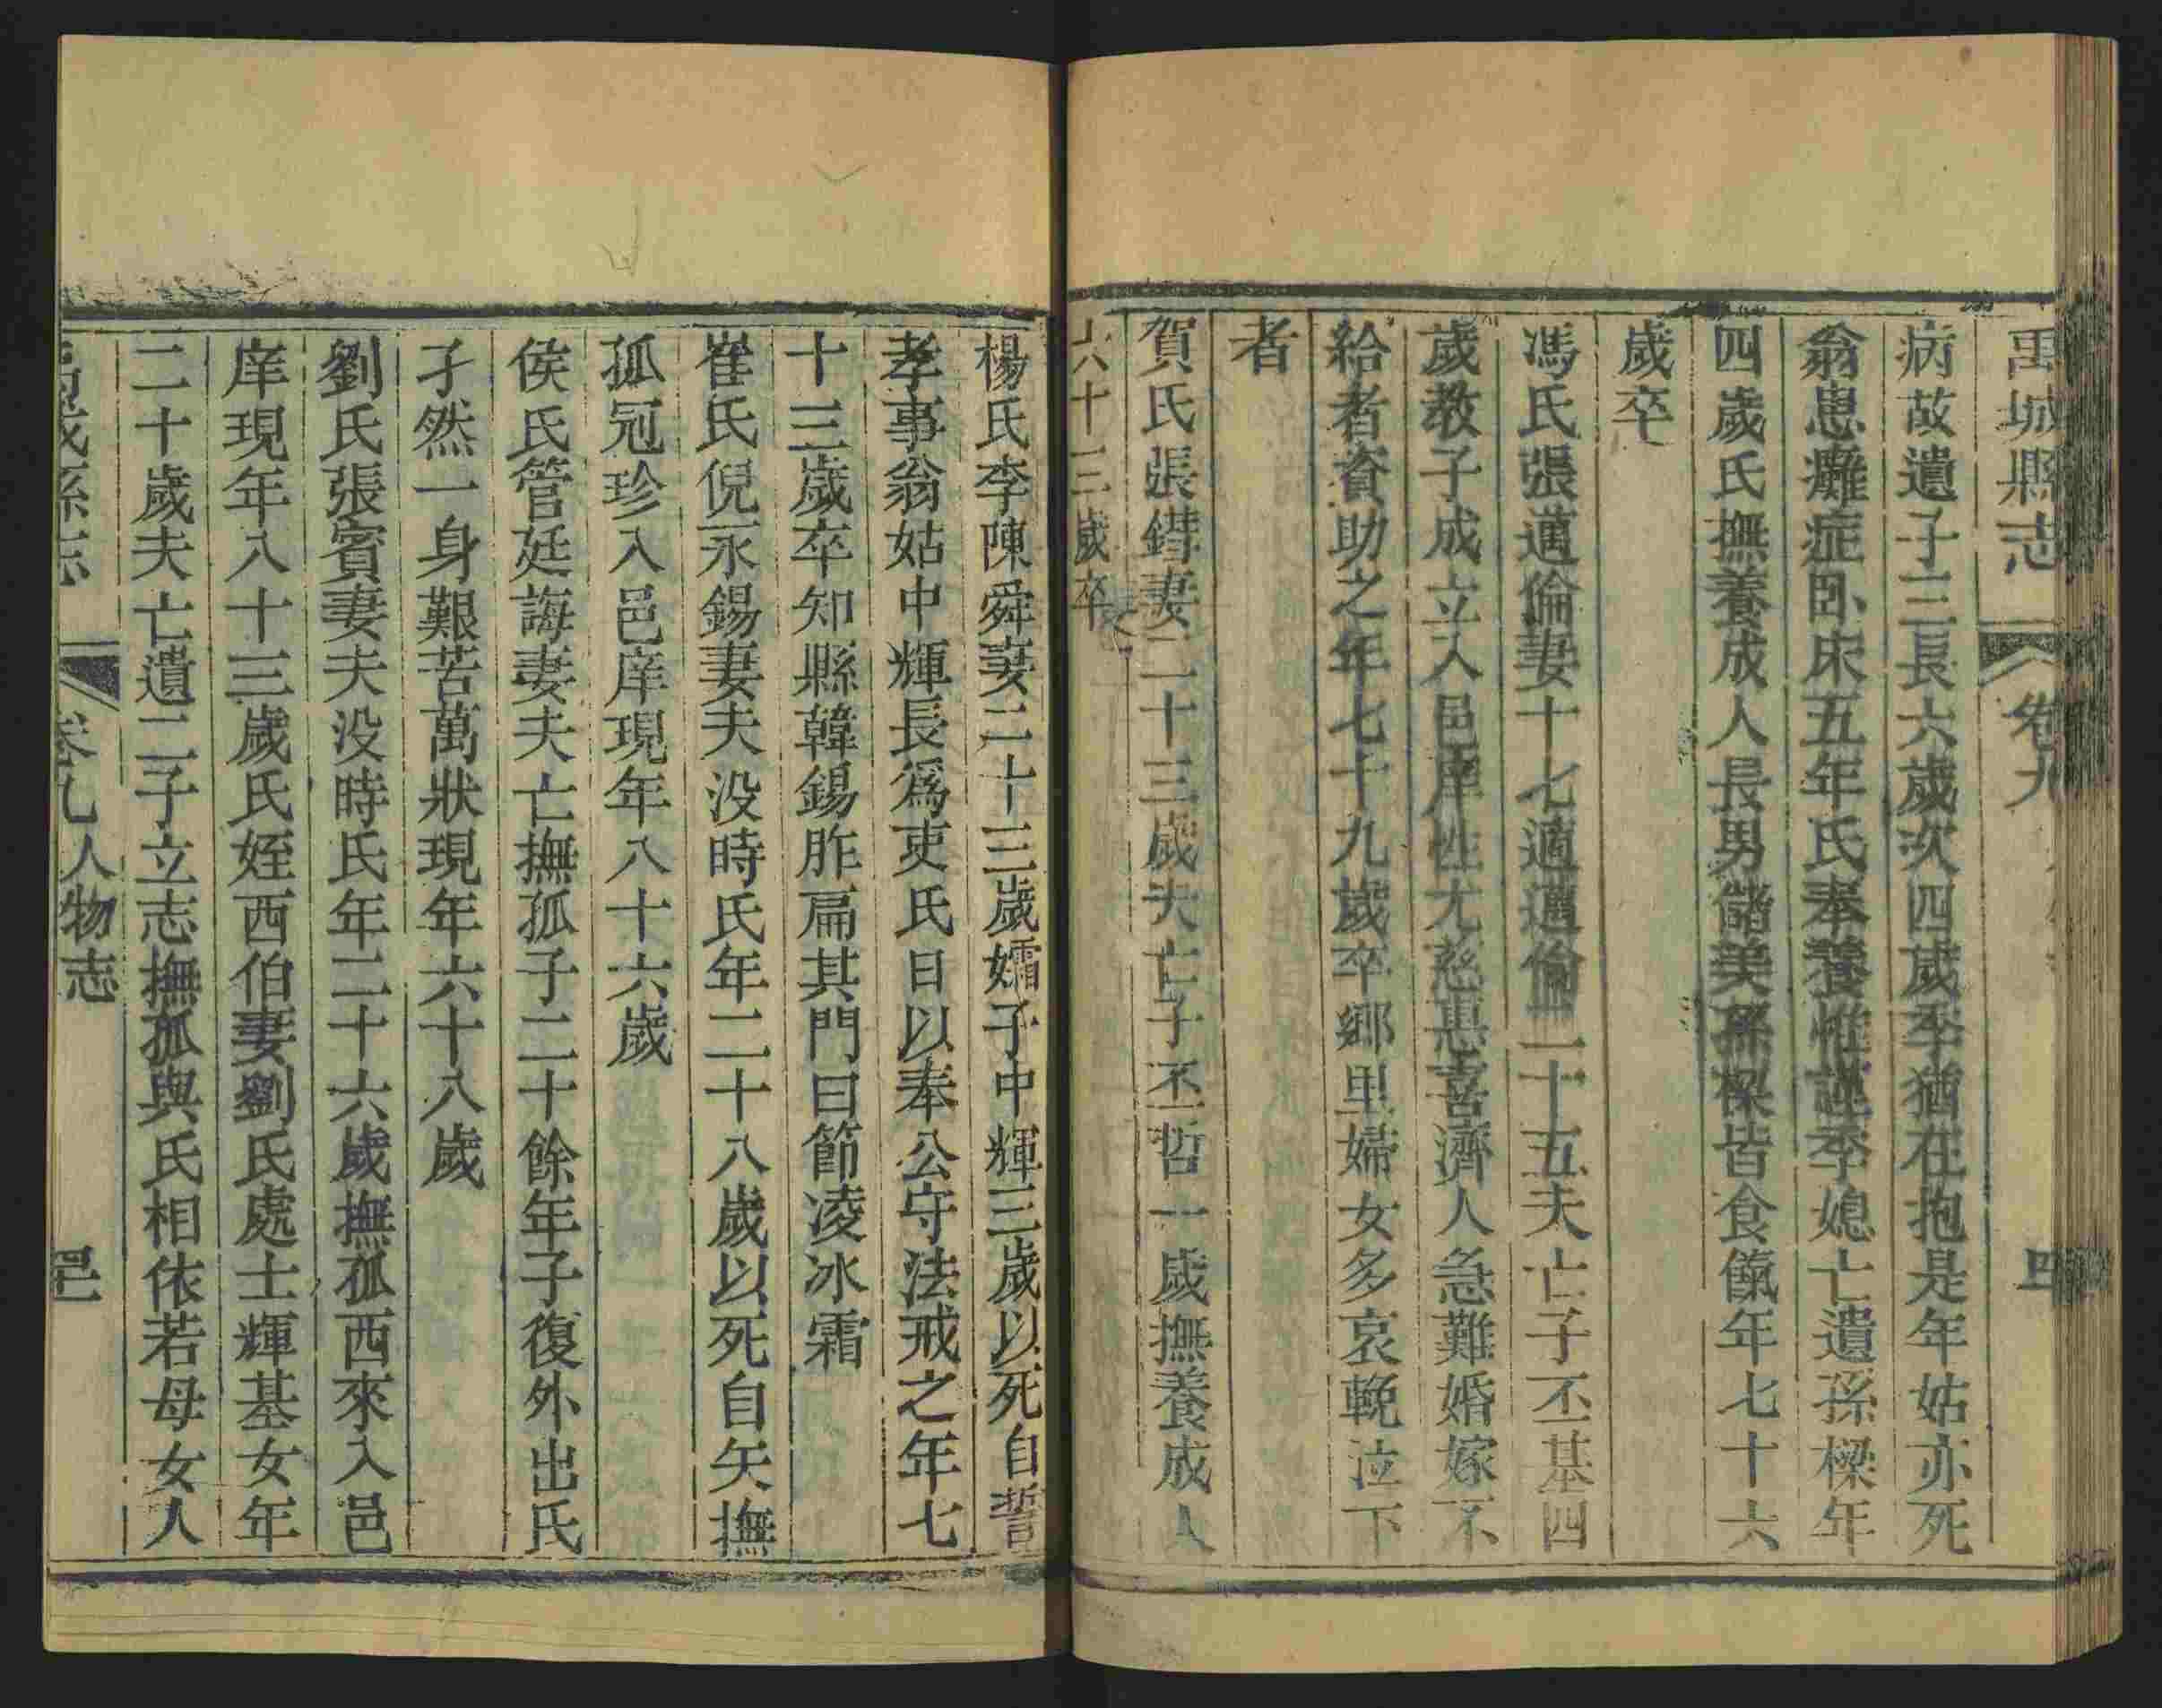 禹城縣志 卷九 四
病故遺子三長六歲次四歲季猶在抱是年姑亦死
翁患癱症臥床五年氏奉養惟謹季媳亡遺孫樑年
四歲氏撫養成人長男儲美孫樑皆食餼年七十六
歲卒
馮氏張邁倫妻十七適邁倫二十五夫亡子丕基四
歲教子成立入邑庠性尤慈惠喜濟人急難婚嫁不
給者資助之年七十九歲卒鄉里婦女多哀輓泣下
者
賀氏張鍇妻二十三歲夫亡子丕哲一歲撫養成人
六十三歲卒
楊氏李陳舜妻二十三歲孀子中輝三歲以死自誓
孝事翁姑中輝長爲吏氏日以奉公守法戒之年七
十三歲卒知縣韓錫胙扁其門曰節凌冰霜
崔氏倪永錫妻夫没時氏年二十八歲以死自矢撫
孤冠珍入邑庠現年八十六歲
侯氏管廷誨妻夫亡撫孤子二十餘年子復外出氏
孑然一身艱苦萬狀現年六十八歲
劉氏張賓妻夫没時氏年二十六歲撫孤西來入邑
庠現年八十三歲氏姪西伯妻劉氏處士輝基女年
二十歲夫亡遺二子立志撫孤與氏相依若母女人
禹城縣志 卷九 人物志